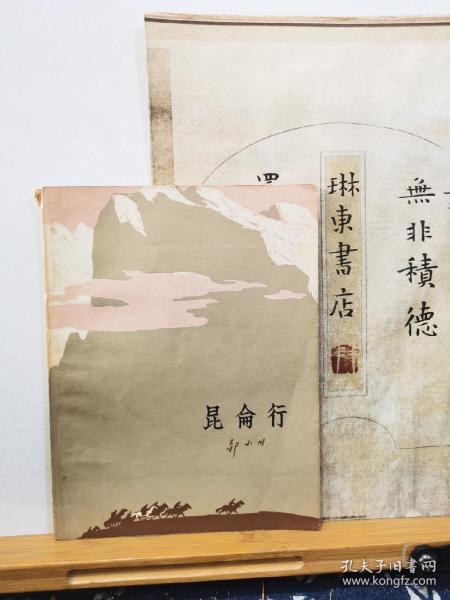 昆侖行
郭小川
琳東書店
無非積德
孔夫子旧书网
www.kongfz.com